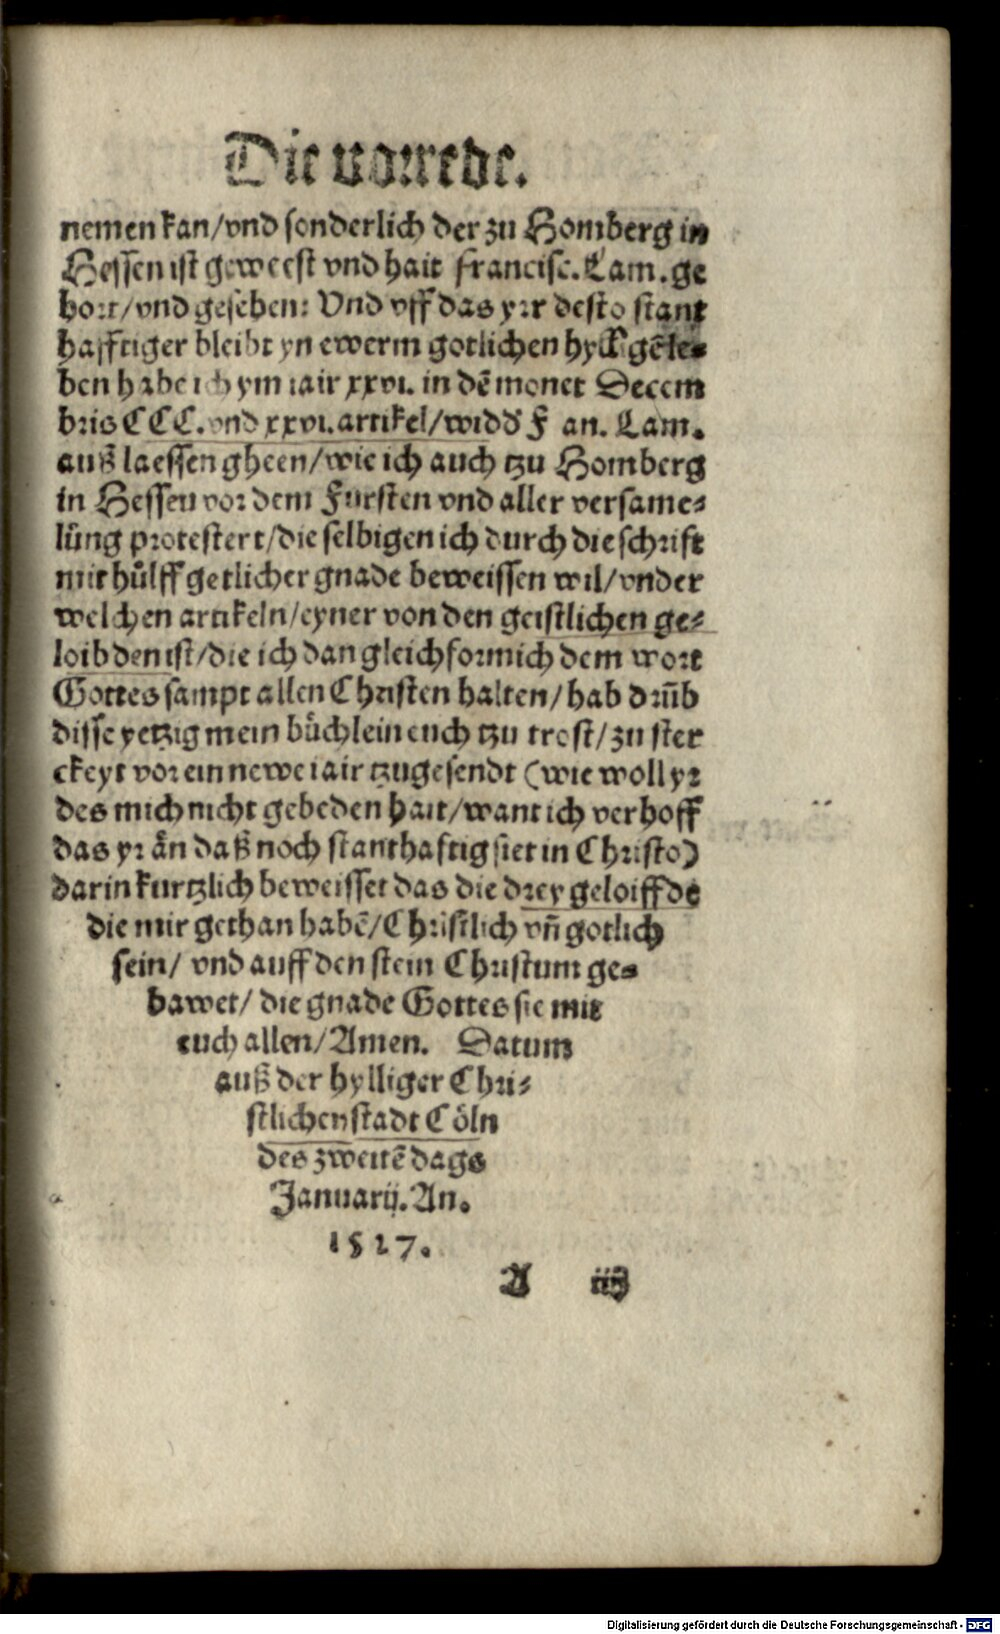 Die vorrede.
nemen kan/vnd sonderlich der zu Homberg in
Hessen ist geweest vnd hait Francisc. Lam. ge
hort/vnd gesehen: Vnd vff das yrr desto stant
hafftiger bleibt yn ewerm gotlichen hyllgē le-
ben habe ich ym iair xxvi. in dē monet Decem
bris CCC. vnd xxvi. artikel/widd' F an. Lam.
auß laessen gheen/wie ich auch tzu Homberg
in Hessen vor dem Fursten vnd aller versame-
lūng protestert/die selbigen ich durch die schrift
mit hůlff getlicher gnade beweissen wil/vnder
welchen artikeln/eyner von den geistlichen ge-
loibden ist/die ich dan gleichformich dem wort
Gottes sampt allen Christen halten/hab drūb
disse yetzig mein bůchlein euch tzu trost/zu ster
ckeyt vor ein newe iair tzugesendt (wie woll yr
des mich nicht gebeden hait/want ich verhoff
das yr ān daß noch stanthaftig siet in Christo)
darin kurtzlich beweisset das die drey geloiffde
die mir gethan habē/Christlich vñ gotlich
sein/ vnd auff den stein Christum ge-
bawet/ die gnade Gottes sie mit
euch allen/Amen. Datum
auß der hylliger Chri-
stlichen stadt Cöln
des zweitē dags
Januarij. An.
1527.
A iij
Digitalisierung gefördert durch die Deutsche Forschungsgemeinschaft - DFG